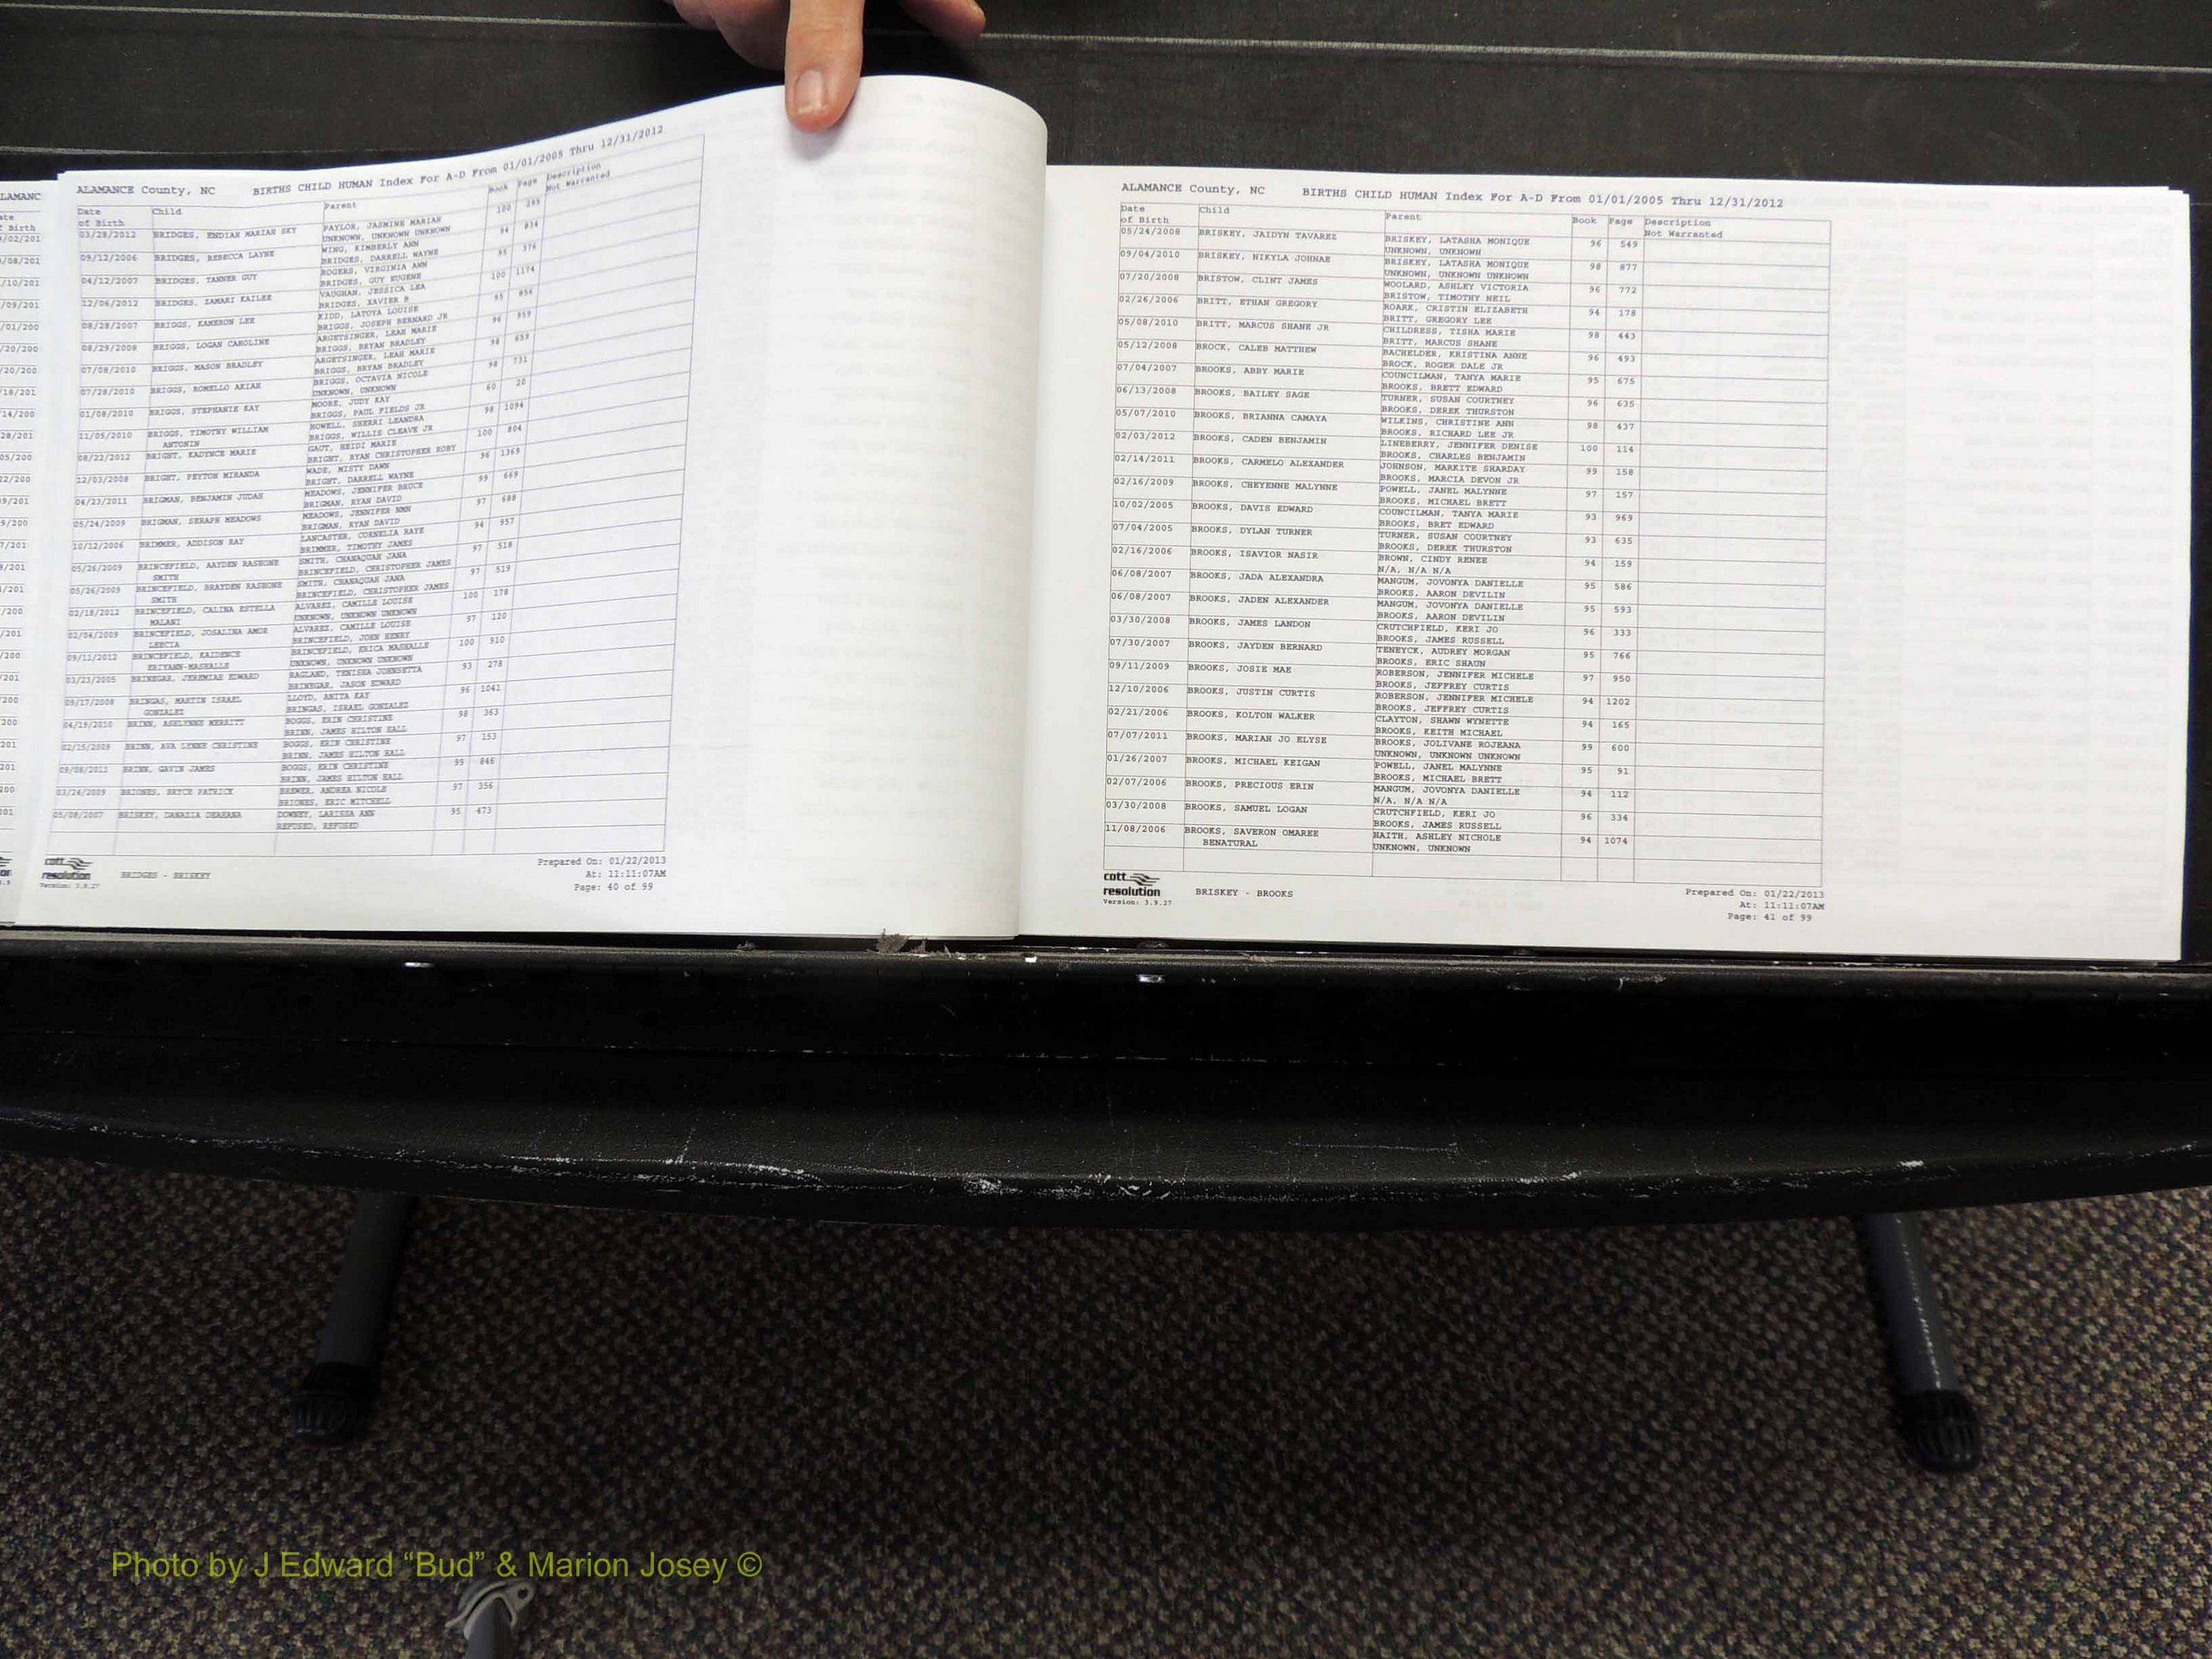 ALAMANCE County, NC BIRTHS CHILD HUMAN Index For A-D From 01/01/2005 Thru 12/31/2012
Date of Birth Child Parent Book Page Description Not Warranted
03/28/2012 BRIDGES, ENDIAH MARIAH SKY PAYLOR, JASMINE MARIAH 100 295
UNKNOWN, UNKNOWN UNKNOWN
09/12/2006 BRIDGES, REBECCA LAYNE WING, KIMBERLY ANN 94 834
BRIDGES, DARRELL WAYNE
04/12/2007 BRIDGES, TANNER GUY ROGERS, VIRGINIA ANN 95 376
BRIDGES, GUY EUGENE
12/06/2012 BRIDGES, ZAMARI KAILEE VAUGHAN, JESSICA LEA 100 1174
BRIDGES, XAVIER B
08/28/2007 BRIGGS, KAMERON LEE KIDD, LATOYA LOUISE 95 856
BRIGGS, JOSEPH BERNARD JR
08/29/2008 BRIGGS, LOGAN CAROLINE ARGETSINGER, LEAH MARIE 96 959
BRIGGS, BRYAN BRADLEY
07/08/2010 BRIGGS, MASON BRADLEY ARGETSINGER, LEAH MARIE 98 659
BRIGGS, BRYAN BRADLEY
07/28/2010 BRIGGS, ROMELLO AKIAH BRIGGS, OCTAVIA NICOLE 98 731
UNKNOWN, UNKNOWN
01/08/2010 BRIGGS, STEPHANIE KAY MOORE, JUDY KAY 60 20
BRIGGS, PAUL FIELDS JR
11/05/2010 BRIGGS, TIMOTHY WILLIAM HOWELL, SHERRI LEANDRA 98 1094
ANTONIN BRIGGS, WILLIS CLEAVE JR
08/22/2012 BRIGHT, KADYNCE MARIE GAUT, HEIDI MARIE 100 804
BRIGHT, RYAN CHRISTOPHER ROBY
12/03/2008 BRIGHT, PEYTON MIRANDA WADE, MISTY DAWN 96 1369
BRIGHT, DARRELL WAYNE
04/23/2011 BRIGMAN, BENJAMIN JUDAH MEADOWS, JENNIFER BRUCE 99 669
BRIGMAN, RYAN DAVID
05/24/2009 BRIGMAN, SERAPH MEADOWS MEADOWS, JENNIFER NMN 97 688
BRIGMAN, RYAN DAVID
10/12/2006 BRIMMER, ADDISON RAY LANCASTER, CORNELIA RAYE 94 957
BRIMMER, TIMOTHY JAMES
05/26/2009 BRINCEFIELD, AAYDEN RASHONE SMITH, CHANAQUAH JANA 97 518
SMITH BRINCEFIELD, CHRISTOPHER JAMES
05/26/2009 BRINCEFIELD, BRAYDEN RASHONE SMITH, CHANAQUAH JANA 97 519
SMITH BRINCEFIELD, CHRISTOPHER JAMES
02/18/2012 BRINCEFIELD, CALINA ESTELLA ALVAREZ, CAMILLE LOUISE 100 178
MALANI UNKNOWN, UNKNOWN UNKNOWN
02/04/2009 BRINCEFIELD, JOSALINA AMOR ALVAREZ, CAMILLE LOUISE 97 120
LEECIA BRINCEFIELD, JOHN HENRY
09/11/2012 BRINCEFIELD, KAIDENCE BRINCEFIELD, ERICA MASHALLE 100 910
ERIYANN-MASHALLE UNKNOWN, UNKNOWN UNKNOWN
03/23/2005 BRINEGAR, JEREMIAH EDWARD RAGLAND, TENISHA JOHNSETTA 93 278
BRINEGAR, JASON EDWARD
09/17/2008 BRINGAS, MARTIN ISRAEL LLOYD, ANITA KAY 96 1041
GONZALEZ BRINGAS, ISRAEL GONZALEZ
04/19/2010 BRINN, ASHLYNNE MERRITT BOGGS, ERIN CHRISTINE 98 363
BRINN, JAMES HILTON HALL
02/15/2009 BRINN, AVA LYNNE CHRISTINE BOGGS, ERIN CHRISTINE 97 153
BRINN, JAMES HILTON HALL
09/08/2011 BRINN, GAVIN JAMES BOGGS, ERIN CHRISTINE 99 846
BRINN, JAMES HILTON HALL
03/24/2009 BRIONES, BRYCE PATRICK BREWER, ANDREA NICOLE 97 356
BRIONES, ERIC MITCHELL
05/08/2007 BRISKEY, DANAZIA DEAHANA DOWNEY, LARISSA ANN 95 473
REFUSED, REFUSED
cott resolution
Version: 3.9.27
BRIDGES - BRISKEY
Prepared On: 01/22/2013
At: 11:11:07AM
Page: 40 of 99
ALAMANCE County, NC BIRTHS CHILD HUMAN Index For A-D From 01/01/2005 Thru 12/31/2012
Date of Birth Child Parent Book Page Description Not Warranted
05/24/2008 BRISKEY, JAIDYN TAVAREZ BRISKEY, LATASHA MONIQUE 96 549
UNKNOWN, UNKNOWN
09/04/2010 BRISKEY, NIKYLA JOHNAE BRISKEY, LATASHA MONIQUE 98 877
UNKNOWN, UNKNOWN UNKNOWN
07/20/2008 BRISTOW, CLINT JAMES WOOLARD, ASHLEY VICTORIA 96 772
BRISTOW, TIMOTHY NEIL
02/26/2006 BRITT, ETHAN GREGORY ROARK, CRISTIN ELIZABETH 94 178
BRITT, GREGORY LEE
05/08/2010 BRITT, MARCUS SHANE JR CHILDRESS, TISHA MARIE 98 443
BRITT, MARCUS SHANE
05/12/2008 BROCK, CALEB MATTHEW BACHELDER, KRISTINA ANNE 96 493
BROCK, ROGER DALE JR
07/04/2007 BROOKS, ABBY MARIE COUNCILMAN, TANYA MARIE 95 675
BROOKS, BRETT EDWARD
06/13/2008 BROOKS, BAILEY SAGE TURNER, SUSAN COURTNEY 96 635
BROOKS, DEREK THURSTON
05/07/2010 BROOKS, BRIANNA CAMAYA WILKINS, CHRISTINE ANN 98 437
BROOKS, RICHARD LEE JR
02/03/2012 BROOKS, CADEN BENJAMIN LINEBERRY, JENNIFER DENISE 100 114
BROOKS, CHARLES BENJAMIN
02/14/2011 BROOKS, CARMELO ALEXANDER JOHNSON, MARKITE SHARDAY 99 158
BROOKS, MARCIA DEVON JR
02/16/2009 BROOKS, CHEYENNE MALYNNE POWELL, JANEL MALYNNE 97 157
BROOKS, MICHAEL BRETT
10/02/2005 BROOKS, DAVIS EDWARD COUNCILMAN, TANYA MARIE 93 969
BROOKS, BRET EDWARD
07/04/2005 BROOKS, DYLAN TURNER TURNER, SUSAN COURTNEY 93 635
BROOKS, DEREK THURSTON
02/16/2006 BROOKS, ISAVIOR NASIR BROWN, CINDY RENEE 94 159
N/A, N/A N/A
06/08/2007 BROOKS, JADA ALEXANDRA MANGUM, JOVONYA DANIELLE 95 586
BROOKS, AARON DEVILIN
06/08/2007 BROOKS, JADEN ALEXANDER MANGUM, JOVONYA DANIELLE 95 593
BROOKS, AARON DEVILIN
03/30/2008 BROOKS, JAMES LANDON CRUTCHFIELD, KERI JO 96 333
BROOKS, JAMES RUSSELL
07/30/2007 BROOKS, JAYDEN BERNARD TENEYCK, AUDREY MORGAN 95 766
BROOKS, ERIC SHAUN
09/11/2009 BROOKS, JOSIE MAE ROBERSON, JENNIFER MICHELE 97 950
BROOKS, JEFFREY CURTIS
12/10/2006 BROOKS, JUSTIN CURTIS ROBERSON, JENNIFER MICHELE 94 1202
BROOKS, JEFFREY CURTIS
02/21/2006 BROOKS, KOLTON WALKER CLAYTON, SHAWN WYNETTE 94 165
BROOKS, KEITH MICHAEL
07/07/2011 BROOKS, MARIAH JO ELYSE BROOKS, JOLIVANE ROJEANA 99 600
UNKNOWN, UNKNOWN UNKNOWN
01/26/2007 BROOKS, MICHAEL KEIGAN POWELL, JANEL MALYNNE 95 91
BROOKS, MICHAEL BRETT
02/07/2006 BROOKS, PRECIOUS ERIN MANGUM, JOVONYA DANIELLE 94 112
N/A, N/A N/A
03/30/2008 BROOKS, SAMUEL LOGAN CRUTCHFIELD, KERI JO 96 334
BROOKS, JAMES RUSSELL
11/08/2006 BROOKS, SAVERON OMAREE HAITH, ASHLEY NICHOLE 94 1074
BENATURAL UNKNOWN, UNKNOWN
cott resolution
Version: 3.9.27
BRISKEY - BROOKS
Prepared On: 01/22/2013
At: 11:11:07AM
Page: 41 of 99
Photo by J Edward “Bud” & Marion Josey ©